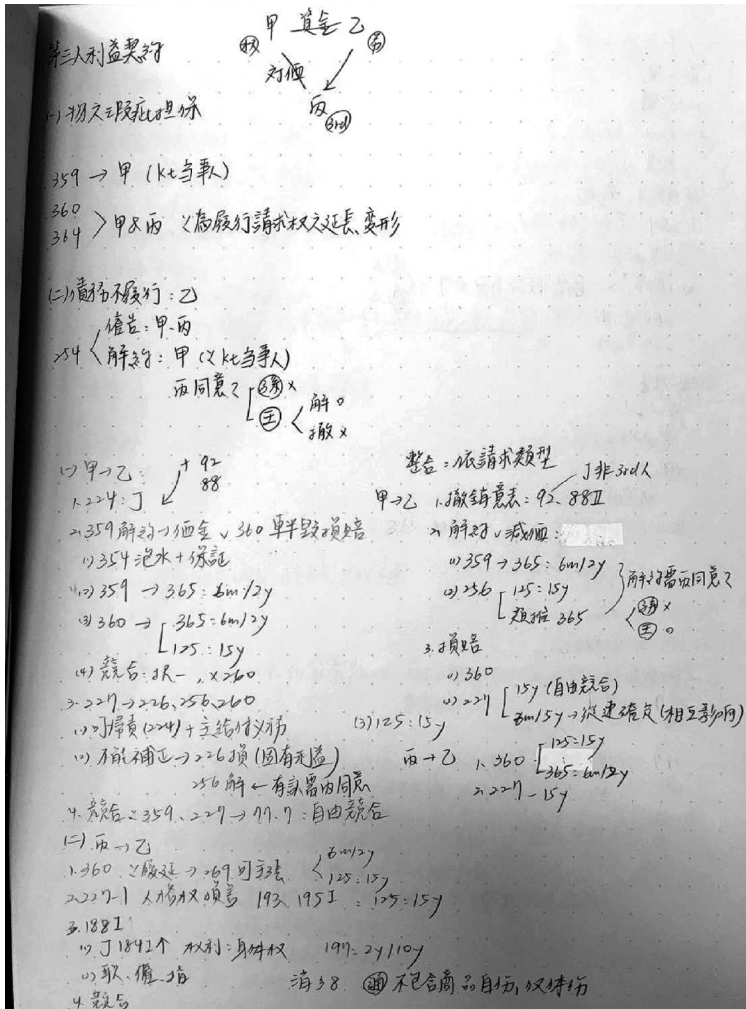 第三人利益契約
甲 買金 乙
債 对価
丙 3rd
(一)物之瑕疵担保
359 → 甲 (kt当事人)
360
364 > 甲&丙 ∵為履行請求权之延長、变形
(二)債務不履行：乙
254 < 催告：甲、丙
解約：甲 (∵kt当事人)
丙同意？ 通 ×
王 < 解 o
撤 ×
(一) 甲→乙： + 92
88
1.224：丁
2.359解約→価金 ∨ 360車半毀損賠
(1)354泡水+保証
(2)359 → 365：6m/2y
(3)360 → 365：6m/2y
125：15y
(4)競合：択一，×260
3.227→226、256、260
(1)可歸責(224)+主給付义務
(2)不能補正→226損(固有利益)
256解 ← 有認需丙同意
(3)125：15y
4.競合：359、227→77.7：自由競合
(二)丙→乙
1.360 ∵履延→269可主張 < 6m/2y
125：15y
2.227-1 人格权損害 193、195I：125：15y
3.188I
(1)丁184I个 权利：身体权 197：2y/10y
(2)职、僱、指
4.競合
消38 通 不包含商品自傷，仅体傷
整合：依請求類型
丁非3rd人
甲→乙 1.撤銷意表：92、88II
2.解約∨減価：
(1)359→365：6m/2y
(2)256 125：15y
類推365
解約需丙同意？
通 ×
王 o
3.損賠
(1)360
(2)227 15y(自由競合)
6m/5y→從速確定(相互影响)
丙→乙 1.360 125：15y
365：6m/2y
2.227-15y